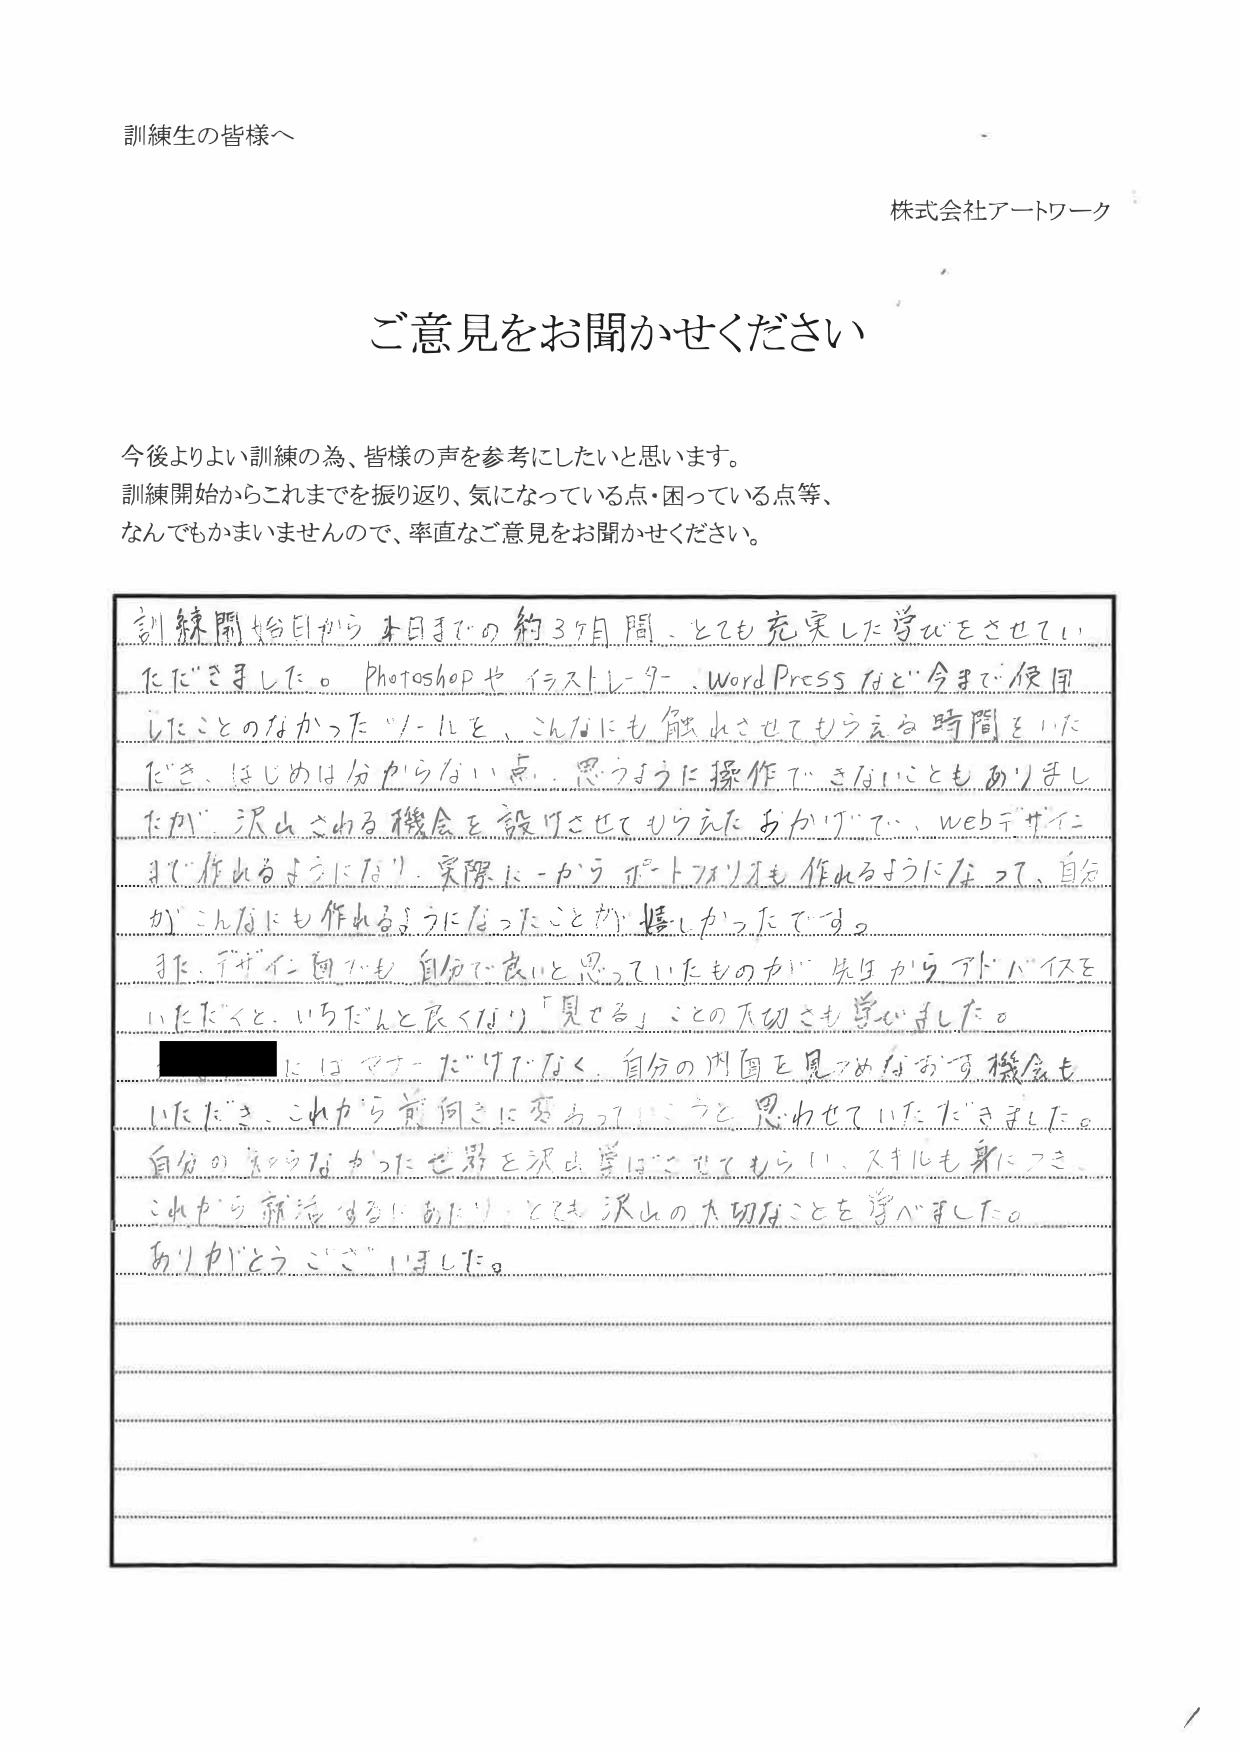 訓練生の皆様へ
株式会社アートワーク
ご意見をお聞かせください
今後よりよい訓練の為、皆様の声を参考にしたいと思います。
訓練開始からこれまでを振り返り、気になっている点・困っている点等、
なんでもかまいませんので、率直なご意見をお聞かせください。
訓練開始日から本日までの約3ヶ月間、とても充実した学びをさせてい
ただきました。Photoshopやイラストレーター、WordPressなど今まで使用
したことのなかったツールを、こんなにも触れさせてもらえる時間をいた
だき、はじめは分からない点、思うように操作できないこともありまし
たが、沢山さわる機会を設けさせてもらえたおかげで、webデザイン
まで作れるようになり、実際に一からポートフォリオも作れるようになって、自分
がこんなにも作れるようになったことが嬉しかったです。
また、デザイン面でも自分で良いと思っていたものが先生からアドバイスを
いただくと、いちだんと良くなり「見せる」ことの大切さも学びました。
にはマナーだけでなく、自分の内面を見つめなおす機会も
いただき、これから前向きに変わっていこうと思わせていただきました。
自分の知らなかった世界を沢山学ばさせてもらい、スキルも身につき、
これから就活するにあたり、とても沢山の大切なことを学べました。
ありがとうございました。